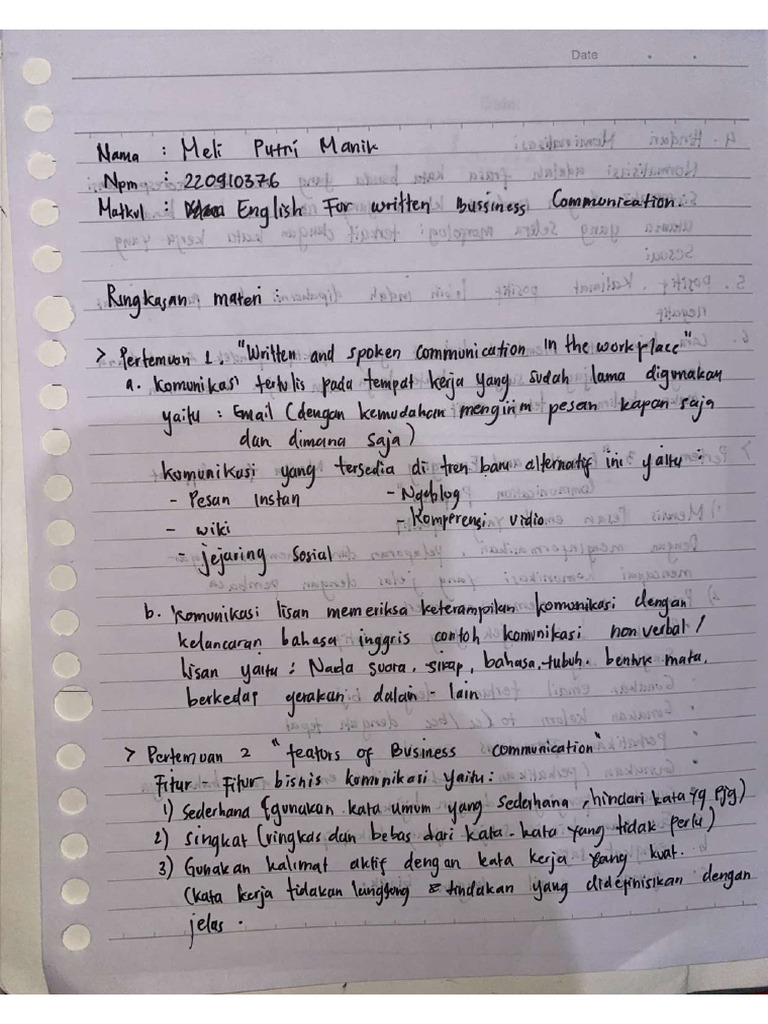 Date
Nama : Meli Putri Manik
Npm : 220910376
Matkul : English For written Bussiness Communication.
Ringkasan materi :
> Pertemuan 1. "Written and spoken communication in the workplace"
a. Komunikasi tertulis pada tempat kerja yang sudah lama digunakan
yaitu : Email (dengan kemudahan mengirim pesan kapan saja
dan dimana saja)
komunikasi yang tersedia di tren baru alternatif ini yaitu :
- Pesan instan - Ngeblog
- wiki - Komperensi vidio
- jejaring sosial
b. Komunikasi lisan memeriksa keterampilan komunikasi dengan
kelancaran bahasa inggris contoh komunikasi non verbal /
lisan yaitu : Nada suara, sikap, bahasa tubuh. bentuk mata,
berkedap gerakan dalain - lain
> Pertemuan 2 "feators of Business communication"
Fitur - Fitur bisnis komunikasi yaitu :
1) Sederhana (gunakan kata umum yang sederhana, hindari kata yg pjg)
2) Singkat (ringkas dan bebas dari kata-kata yang tidak perlu)
3) Gunakan kalimat aktif dengan kata kerja yang kuat.
(kata kerja tidakan langsong tindakan yang didefinisikan dengan
jelas.